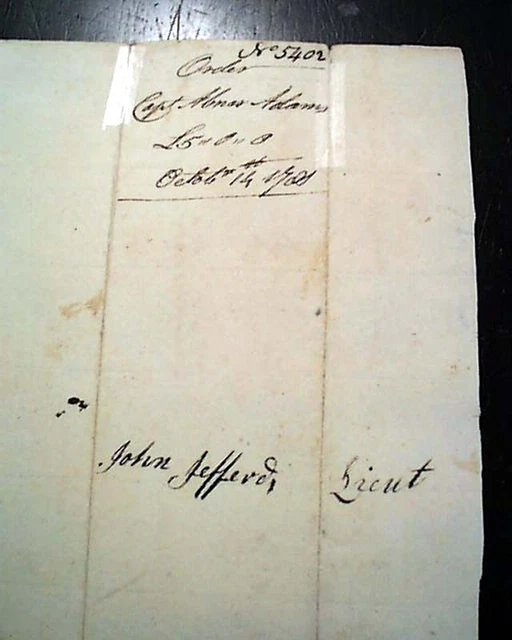 No 5402
Order
Capt Abner Adams
£5"0"0
Octobr 14th 1781
John Jefferds Lieut